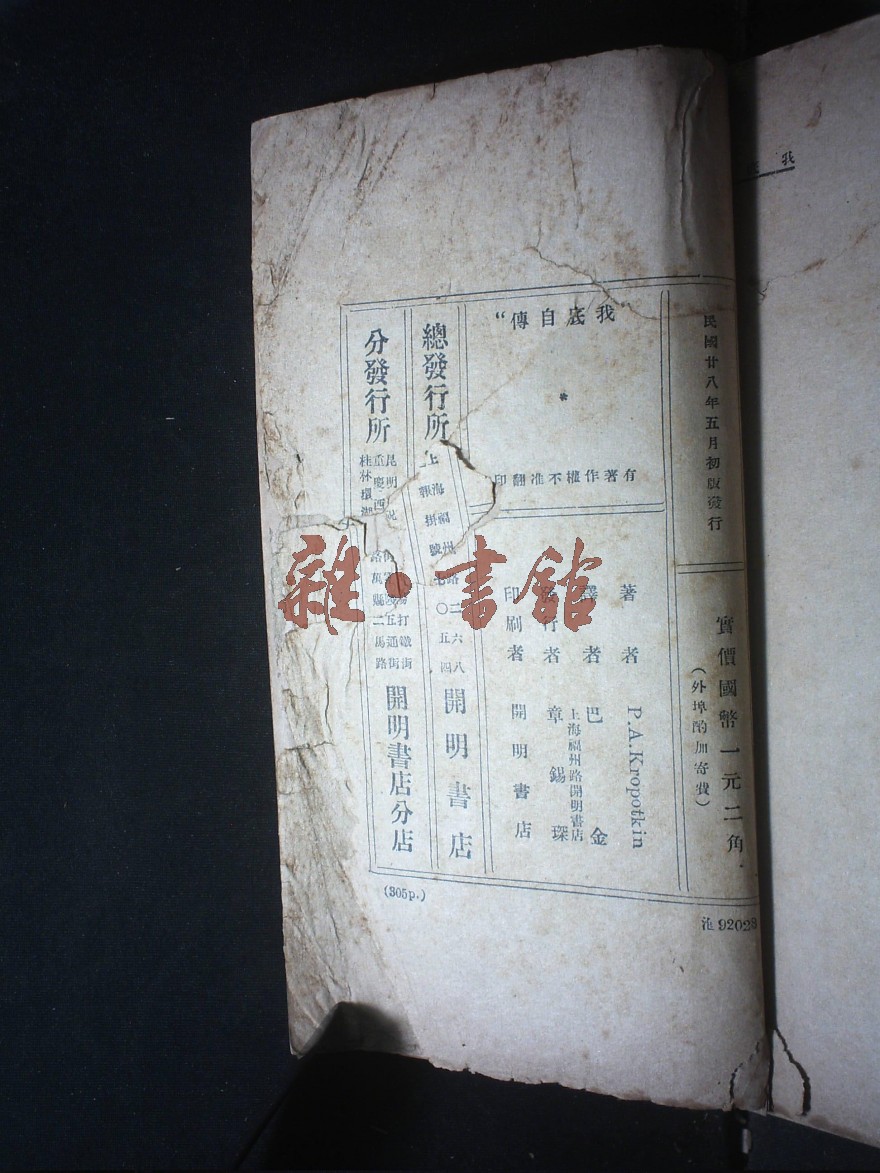 民國廿八年五月初版發行
實價國幣一元二角
（外埠酌加寄費）
我底自傳“
*
有著作權不准翻印
著者 P.A.Kropotkin
譯者 巴金
行者 章錫琛
上海福州路開明書店
印刷者 開明書店
總發行所 開明書店
上海福州路二六八
報掛號 〇五四
分發行所 開明書店分店
昆明
打鐵街
重慶西
五通街
桂林環湖
路萬縣二馬路
(305p.)
92028
我
雜·書館